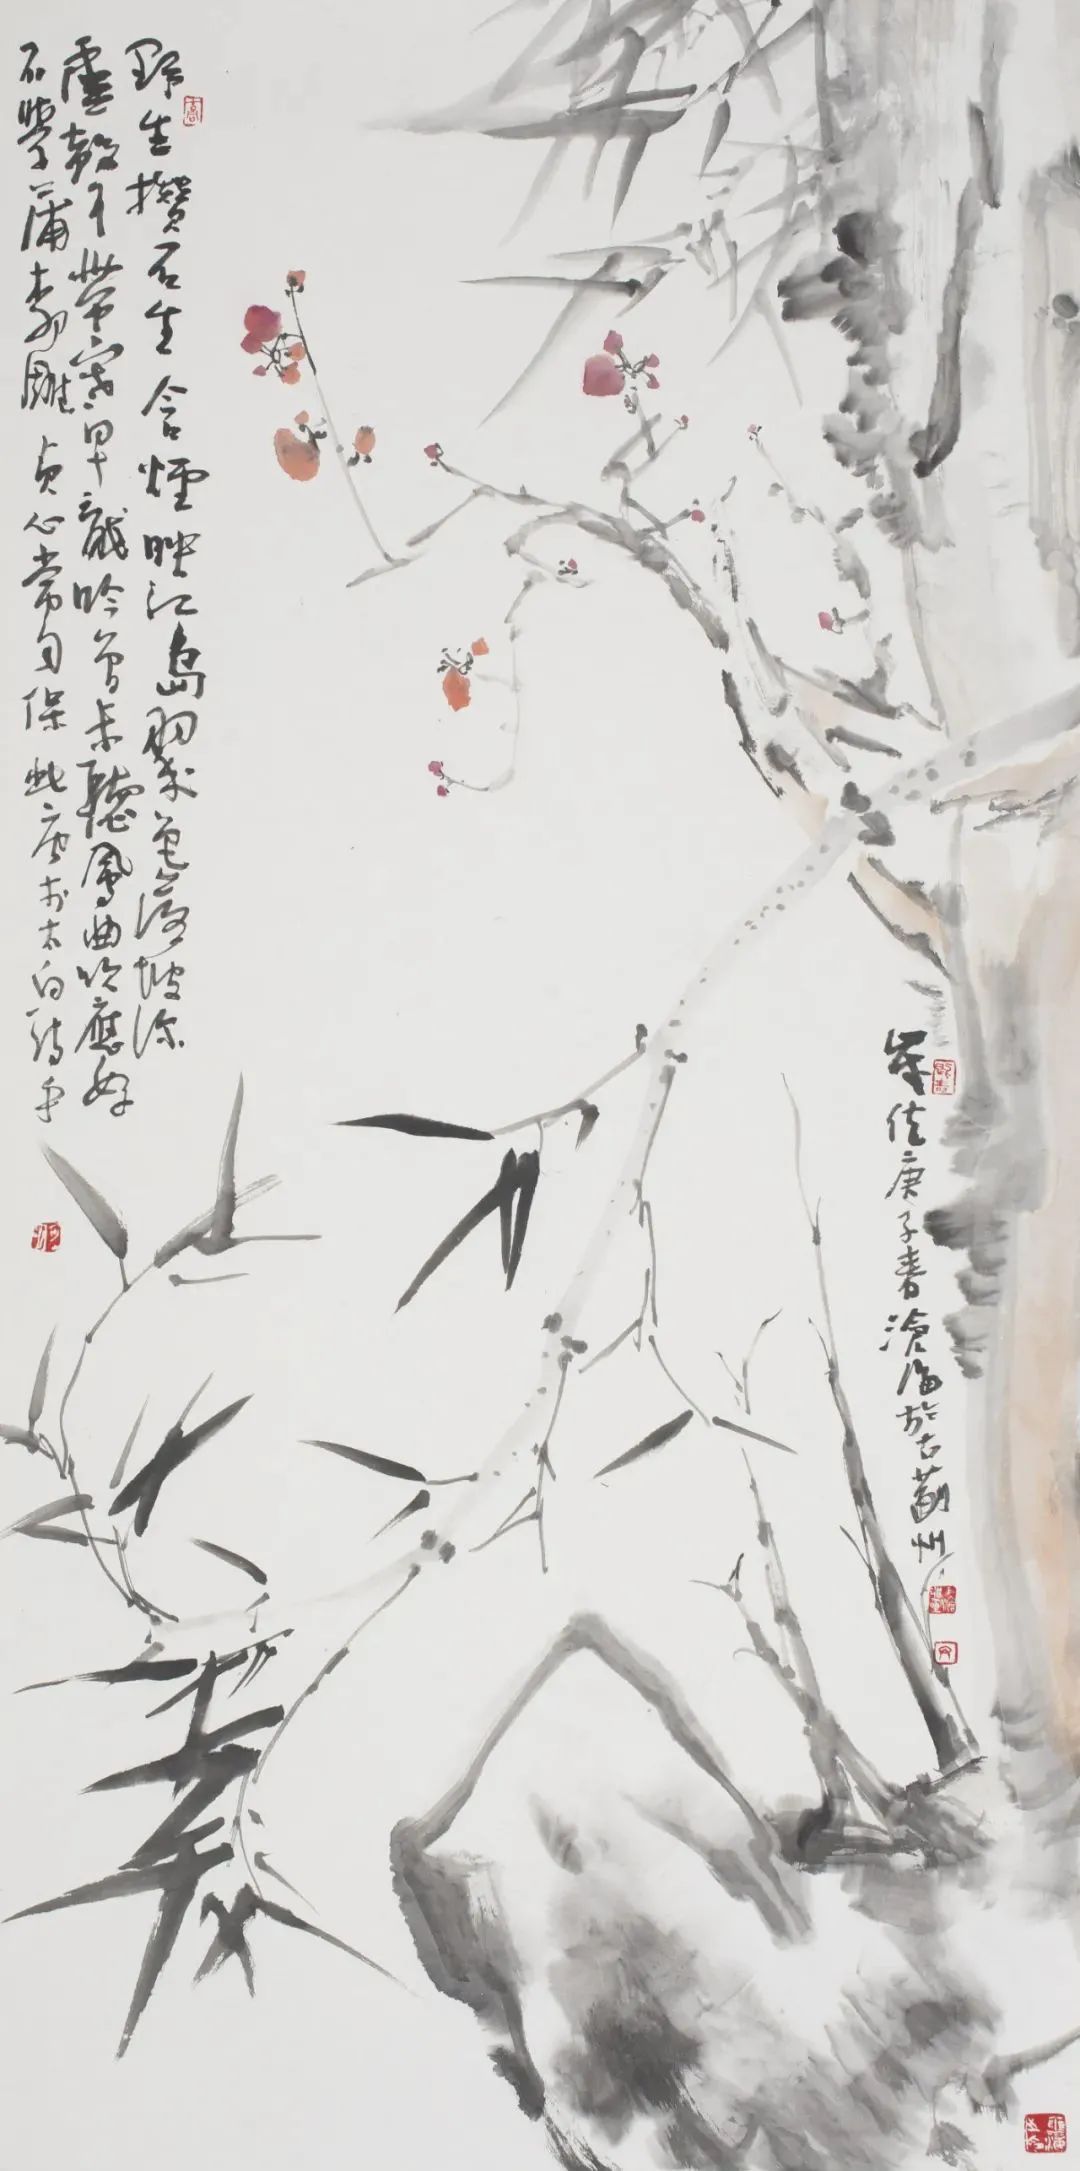 野生攢石生含煙映江島翠色落坡深
虛帶寒早龍吟曾未聽鳳曲吹應好
不學蒲柳雕貞心常自保此唐李太白詩
歲在庚子春滄海於古薊州